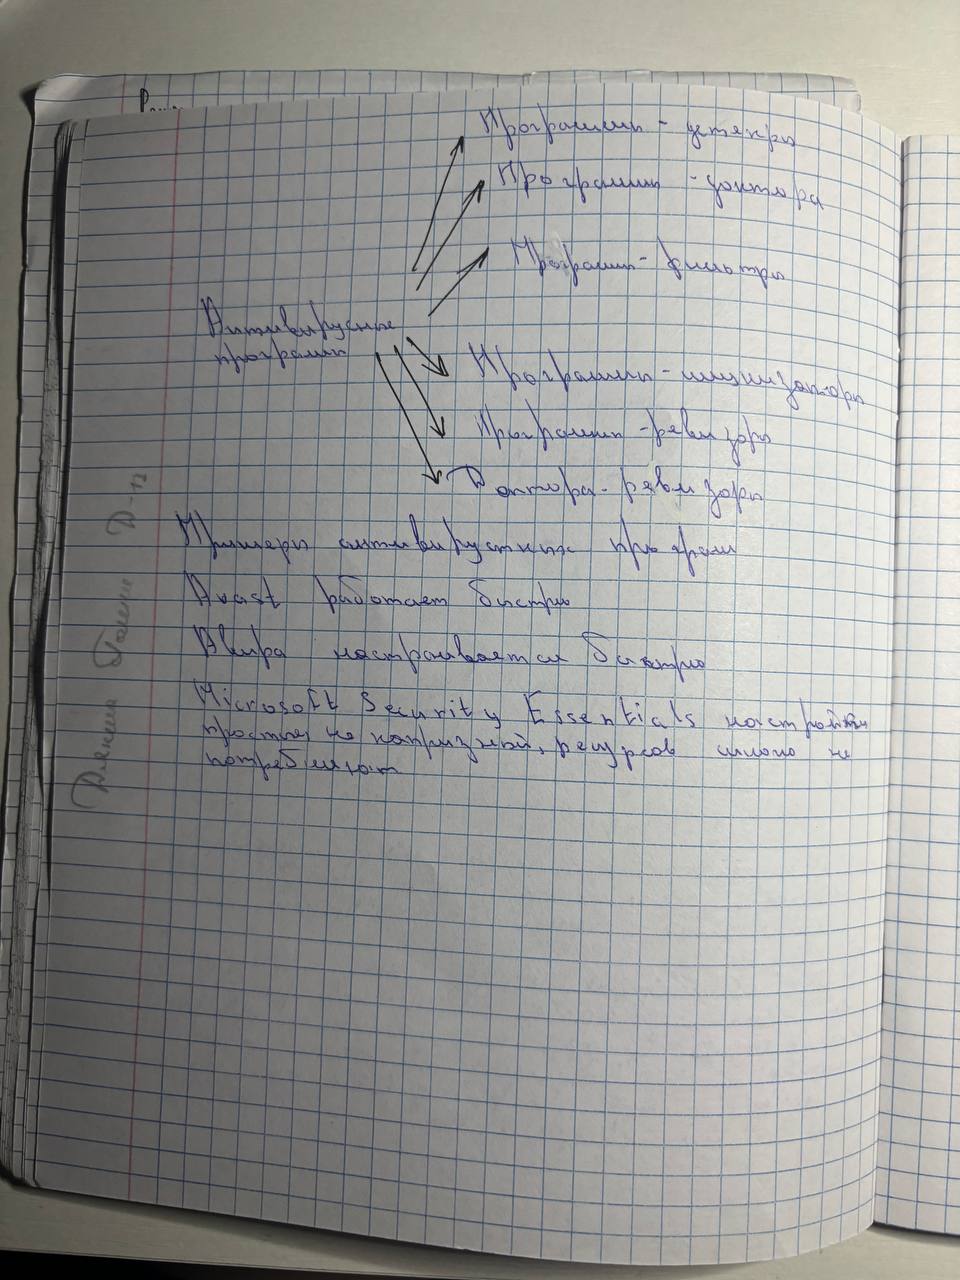 Программы - детекры
Программы - доктора
Программы - фильтры
Антивирусные
программы
Программы - имунизаторы
Программы - ревизоры
Доктора - ревизоры
Примеры антивирустных програм
Avast работает быстро
Авира настраивается быстро
Microsoft Security Essentials настройки
простые, не капризный, ресурсов много не
потребляют